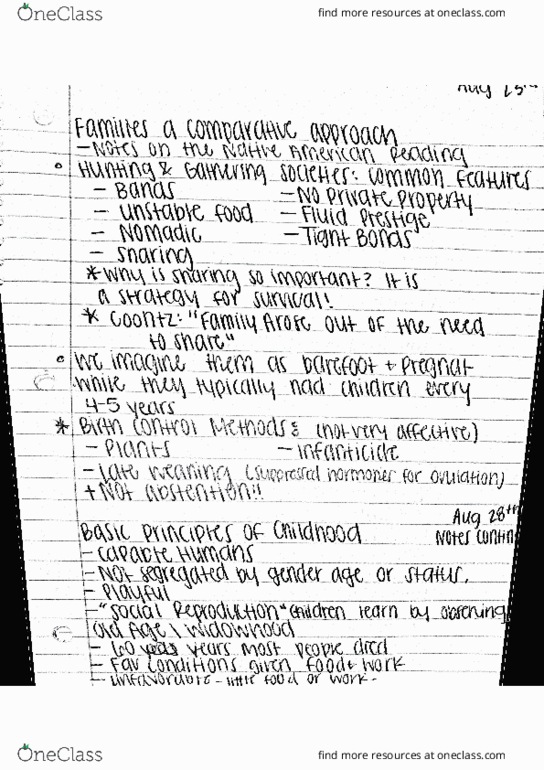 OneClass
find more resources at oneclass.com
Aug 25th
Families a comparative approach
- Notes on the Native American Reading
Hunting & Gathering Societies: Common Features
- Bands - No private property
- unstable food - Fluid Prestige
- Nomadic - Tight Bonds
- sharing
* Why is sharing so important? It is
a strategy for survival!
* Coontz: "Family Arose out of the need
to share"
We imagine them as barefoot + pregnat
while they typically had children every
4-5 years
* Birth Control Methods: (not very affective)
- Plants - infanticide
- Late weaning (suppressed hormones for ovulation)
+ Not abstention!!
Aug 28th
Basic Principles of Childhood Notes Contin
- Capable Humans
- Not segregated by gender age or status.
- Playful
- "Social Reproduction" children learn by observing
Old Age \ widowhood
- 60 years most people died
- Fav conditions given food + work
- unfavorable - little food or work -
OneClass
find more resources at oneclass.com